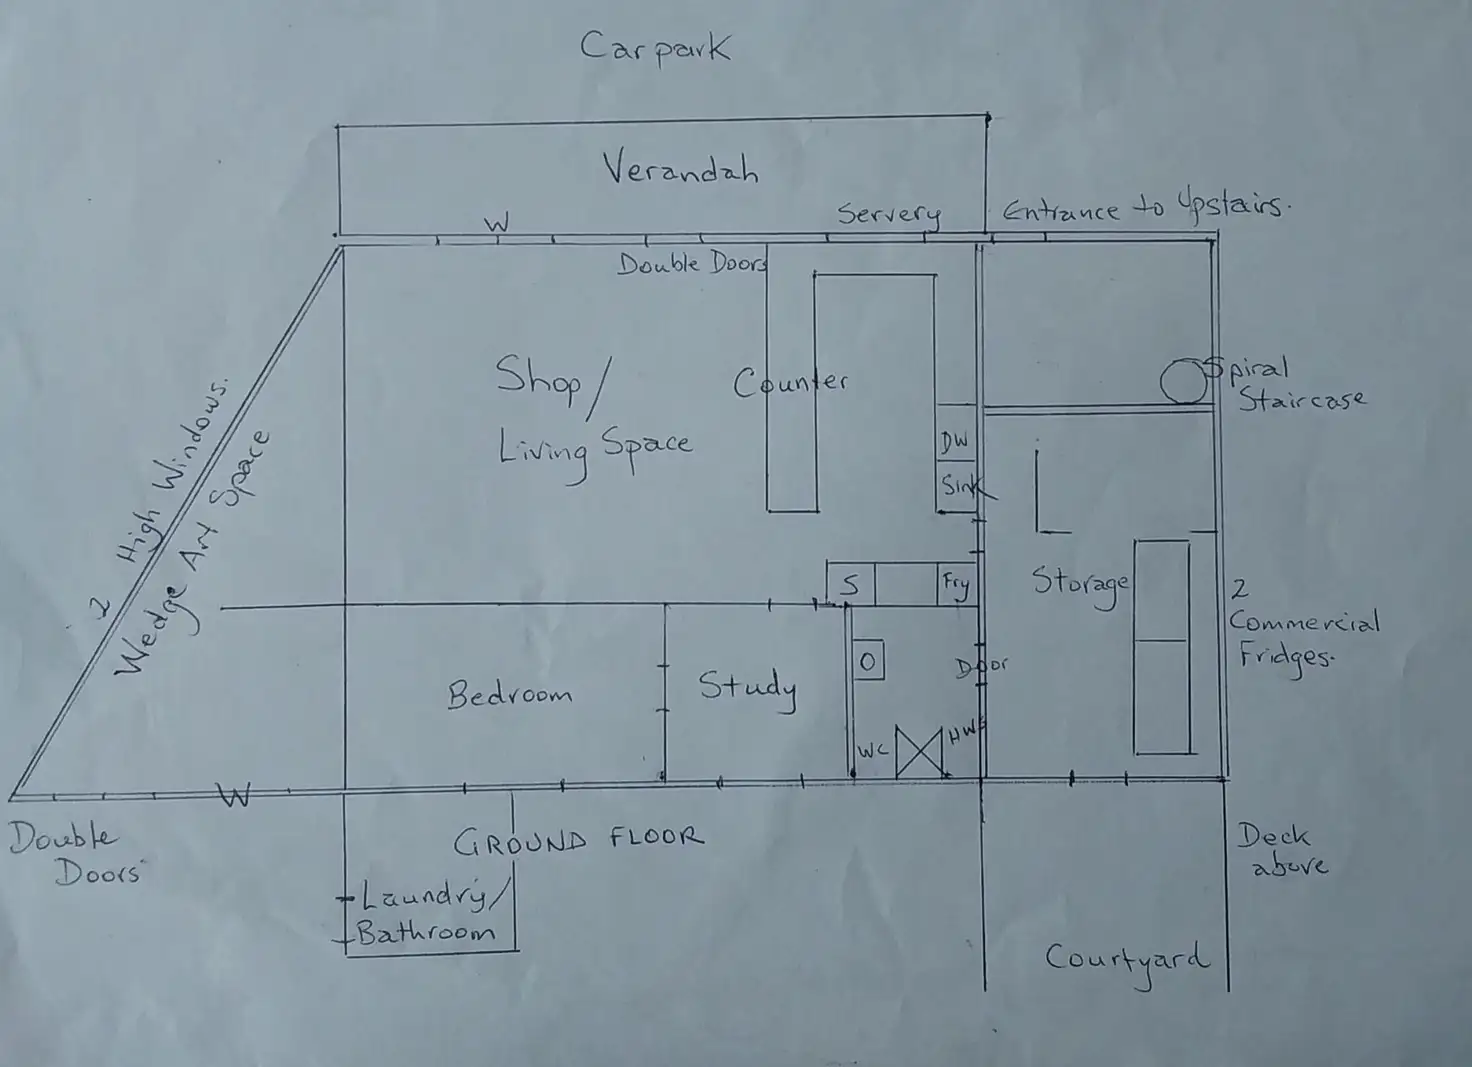 Carpark
Verandah
W
Servery
Entrance to Upstairs.
Double Doors
Spiral
Staircase
Shop/
Living Space
Counter
DW
Sink
2 High Windows.
Wedge Art Space
S
Fry
Storage
2
Commercial
Fridges.
Bedroom
Study
O
Door
WC
HWS
W
Double
Doors
GROUND FLOOR
Deck
above
Laundry/
Bathroom
Courtyard